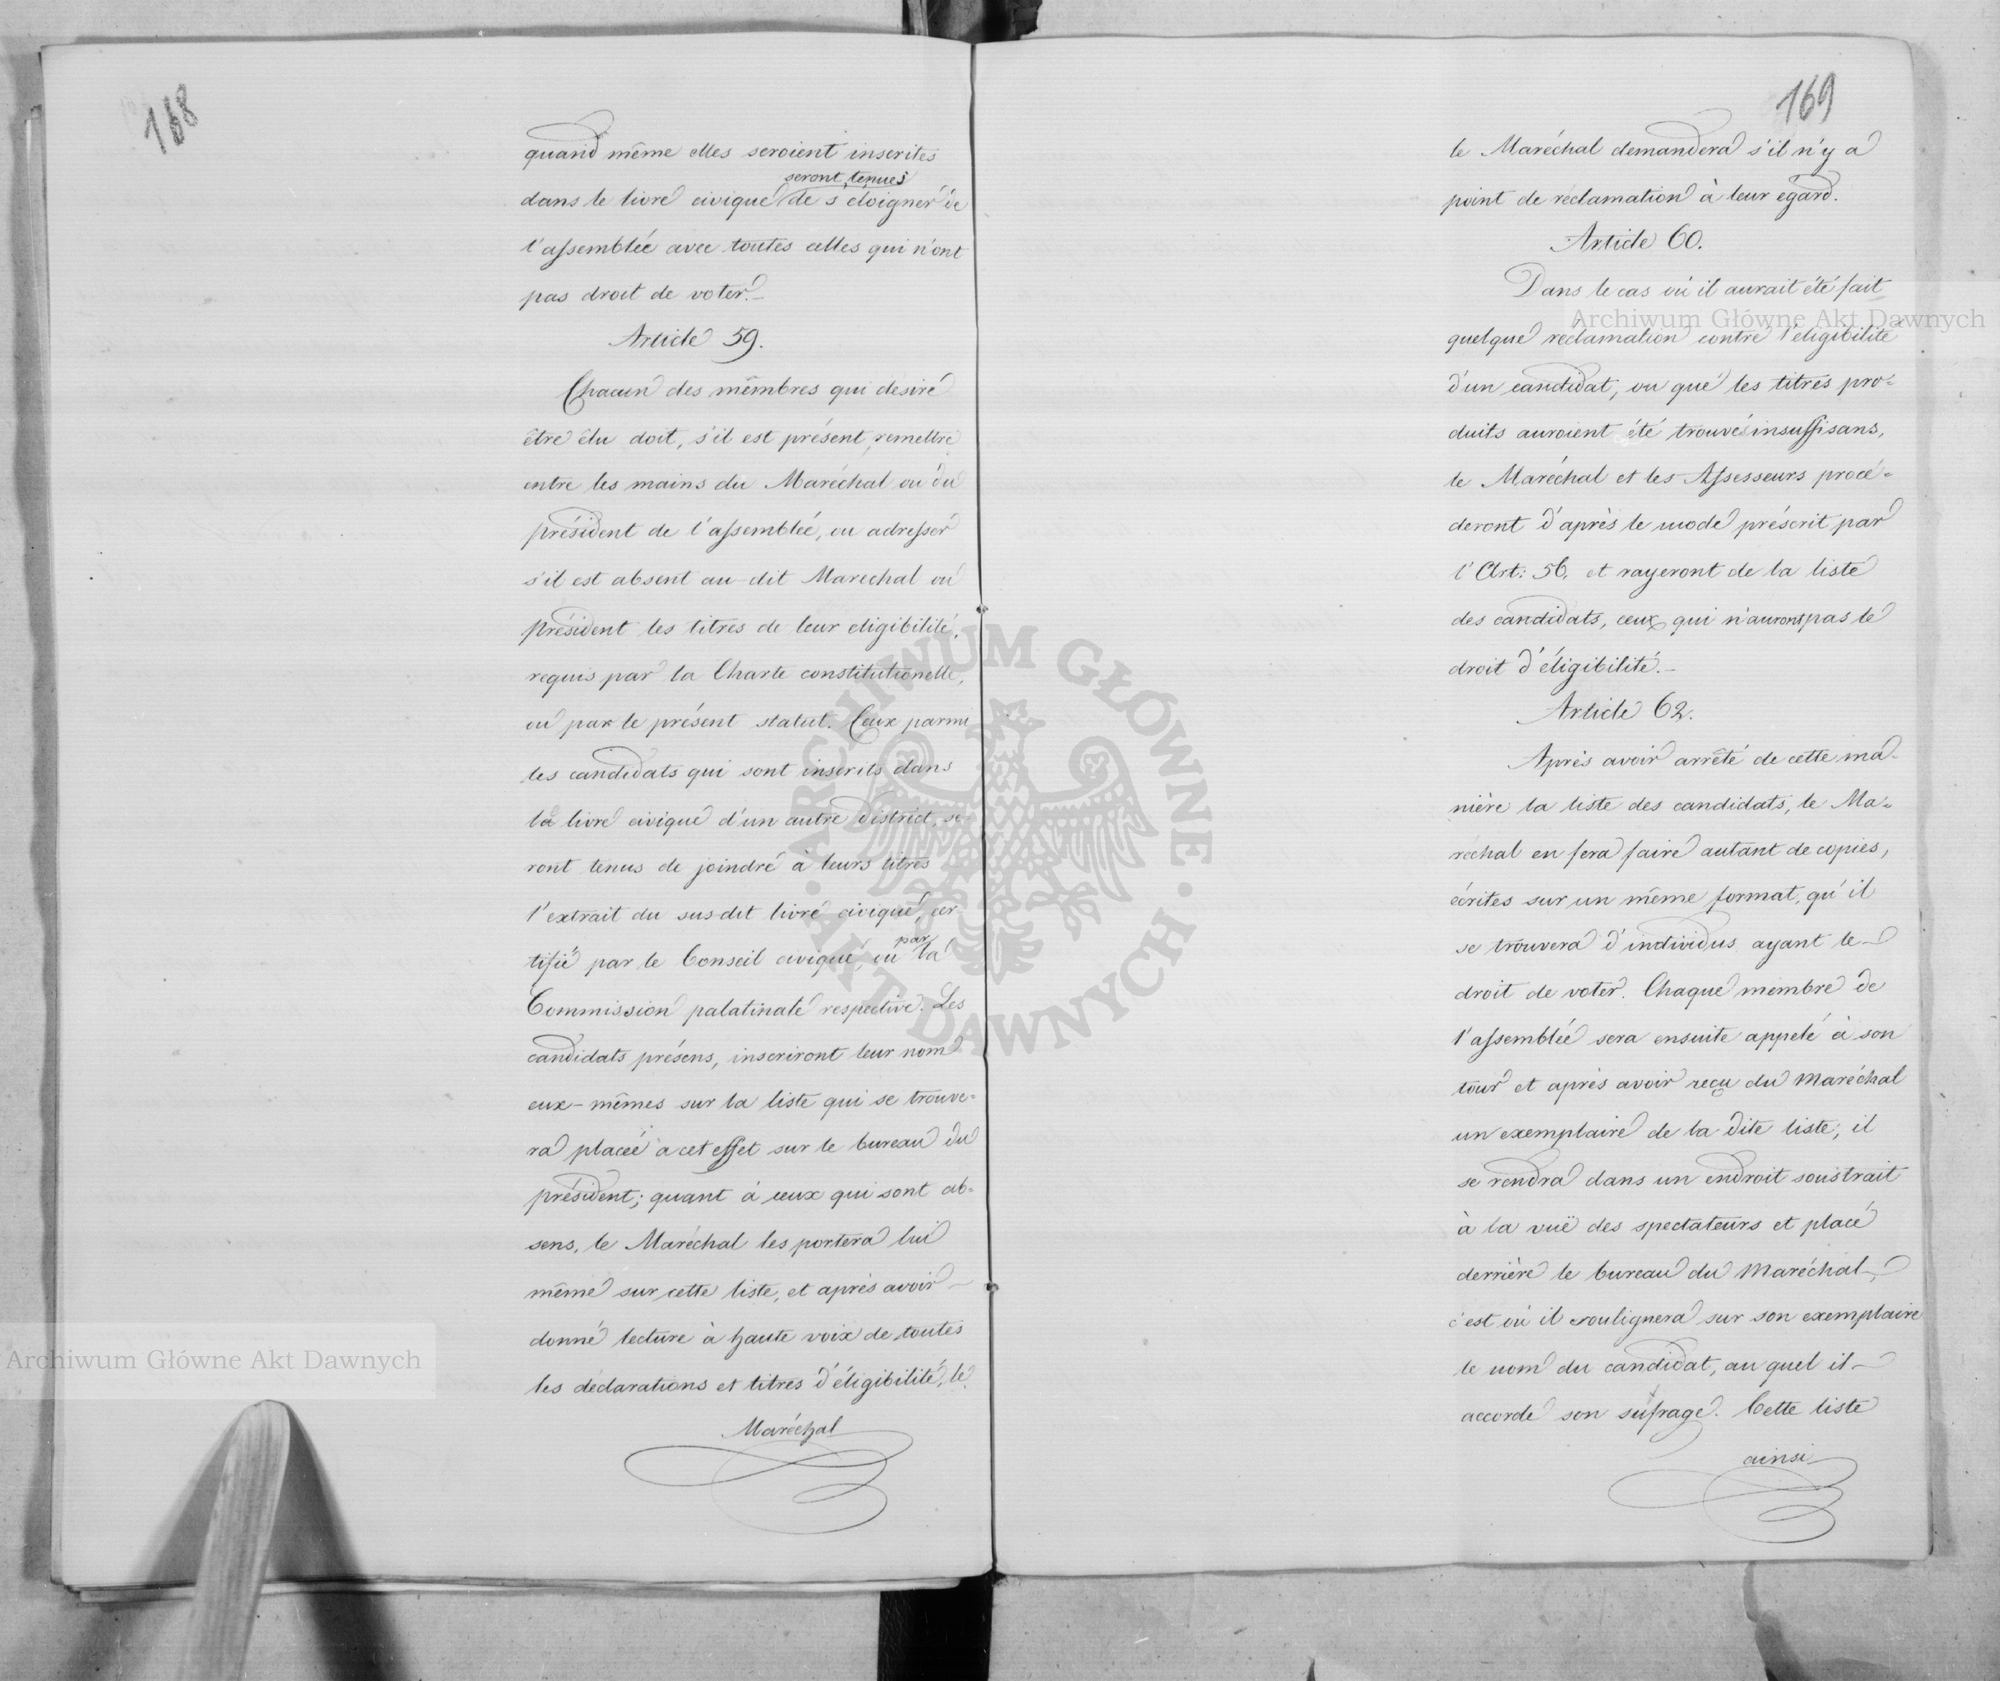 168
quand même elles seroient inscrites
seront tenues
dans le livre civique de s'éloigner de
l'assemblée avec toutes celles qui n'ont
pas droit de voter.
Article 59.
Chacun des mêmbres qui desire
être élu doit, s'il est présent, remettre
entre les mains du Maréchal ou du
président de l'assemblée, ou adresser
s'il est absent au-dit Marechal ou
président les titres de leur eligibilité,
requis par la Charte constitutionelle,
ou par le présent statut. Ceux parmi
les candidats qui sont inscrits dans
le livre civique d'un autre District, se-
ront tenus de joindre à leurs titres
l'extrait du sus-dit livre civique, cer-
par
tifié par le Conseil civique, ou la
Commission palatinale respective. Les
candidats présens, inscriront leur nom
eux-mêmes sur la liste qui se trouve-
ra placée a cet effet sur le bureau du
président; quant à ceux qui sont ab-
sens, le Maréchal les portera lui
même sur cette liste, et après avoir
donné lecture à haute voix de toutes
les déclarations et titres d'éligibilité, le
Maréchal
169
le Maréchal demandera s'il n'y a
point de réclamation à leur egard.
Article 60.
Dans le cas où il aurait été fait
quelque réclamation contre l'éligibilité
d'un candidat, ou que les titres pro-
duits auroient été trouvés insuffisans,
le Maréchal et les Assesseurs procé-
deront d'après le mode préscrit par
l'Art: 56. et rayeront de la liste
des candidats, ceux qui n'auront pas le
droit d'éligibilité.
Article 62.
Après avoir arrêté de cette ma-
nière la liste des candidats, le Ma-
réchal en fera faire autant de copies,
écrites sur un même format, qu'il
se trouvera d'individus ayant le
droit de voter. Chaque membre de
l'assemblée sera ensuite appelé à son
tour et après avoir reçu du Maréchal
un exemplaire de la dite liste, il
se rendra dans un endroit soustrait
à la vuë des spectateurs et placé
derrière le bureau du Maréchal,
c'est où il soulignera sur son exemplaire
le nom du candidat, au quel il
accorde son sufrage. Cette liste
ainsi
Archiwum Główne Akt Dawnych
Archiwum Główne Akt Dawnych
ARCHIWUM GŁÓWNE
AKT DAWNYCH